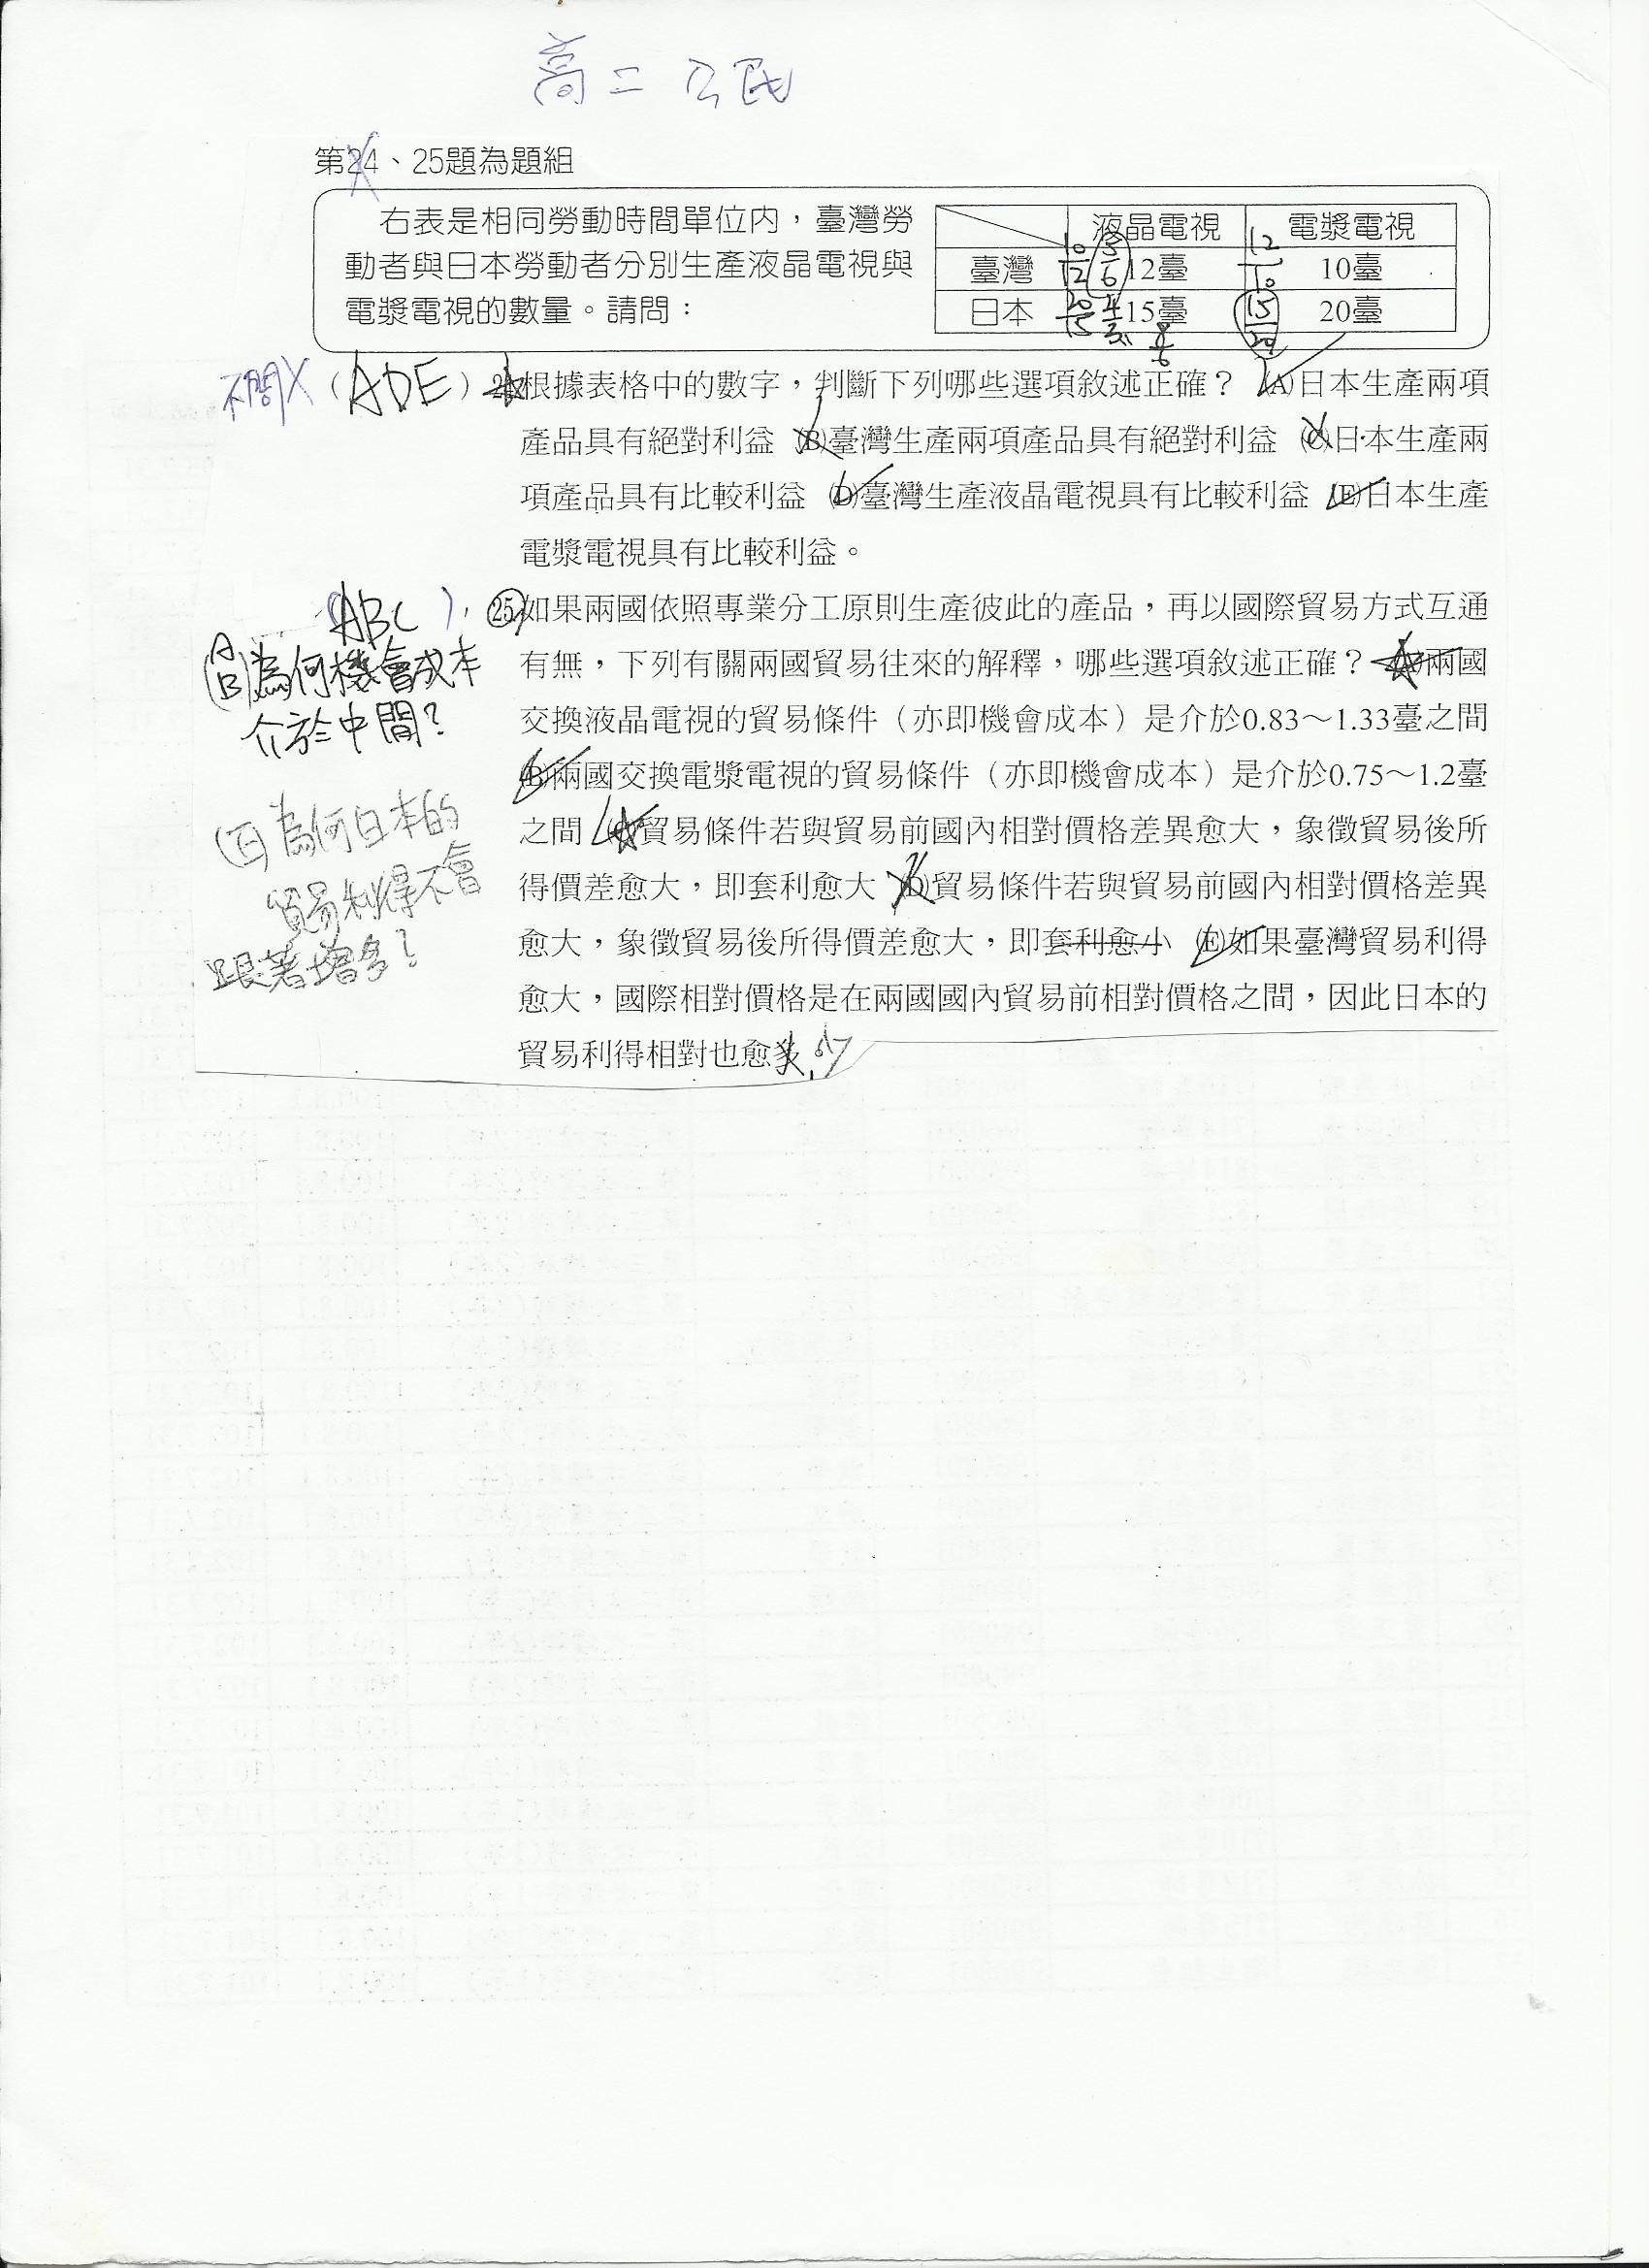 高二 公民
第24、25題為題組
右表是相同勞動時間單位內，臺灣勞
動者與日本勞動者分別生產液晶電視與
電漿電視的數量。請問：
液晶電視 電漿電視
臺灣 10/12 5/6 12臺 12/10 10臺
日本 20/15 4/3 15臺 15/20 20臺
不問X (ADE) 24.根據表格中的數字，判斷下列哪些選項敘述正確？ (A)日本生產兩項
產品具有絕對利益 (B)臺灣生產兩項產品具有絕對利益 (C)日本生產兩
項產品具有比較利益 (D)臺灣生產液晶電視具有比較利益 (E)日本生產
電漿電視具有比較利益。
(ABC) 25.如果兩國依照專業分工原則生產彼此的產品，再以國際貿易方式互通
有無，下列有關兩國貿易往來的解釋，哪些選項敘述正確？ (A)兩國
交換液晶電視的貿易條件（亦即機會成本）是介於0.83～1.33臺之間
(B)兩國交換電漿電視的貿易條件（亦即機會成本）是介於0.75～1.2臺
之間 (C)貿易條件若與貿易前國內相對價格差異愈大，象徵貿易後所
得價差愈大，即套利愈大 (D)貿易條件若與貿易前國內相對價格差異
愈大，象徵貿易後所得價差愈大，即套利愈小 (E)如果臺灣貿易利得
愈大，國際相對價格是在兩國國內貿易前相對價格之間，因此日本的
貿易利得相對也愈
(A B)為何機會成本
介於中間？
(E)為何日本的
貿易利得不會
跟著增多？